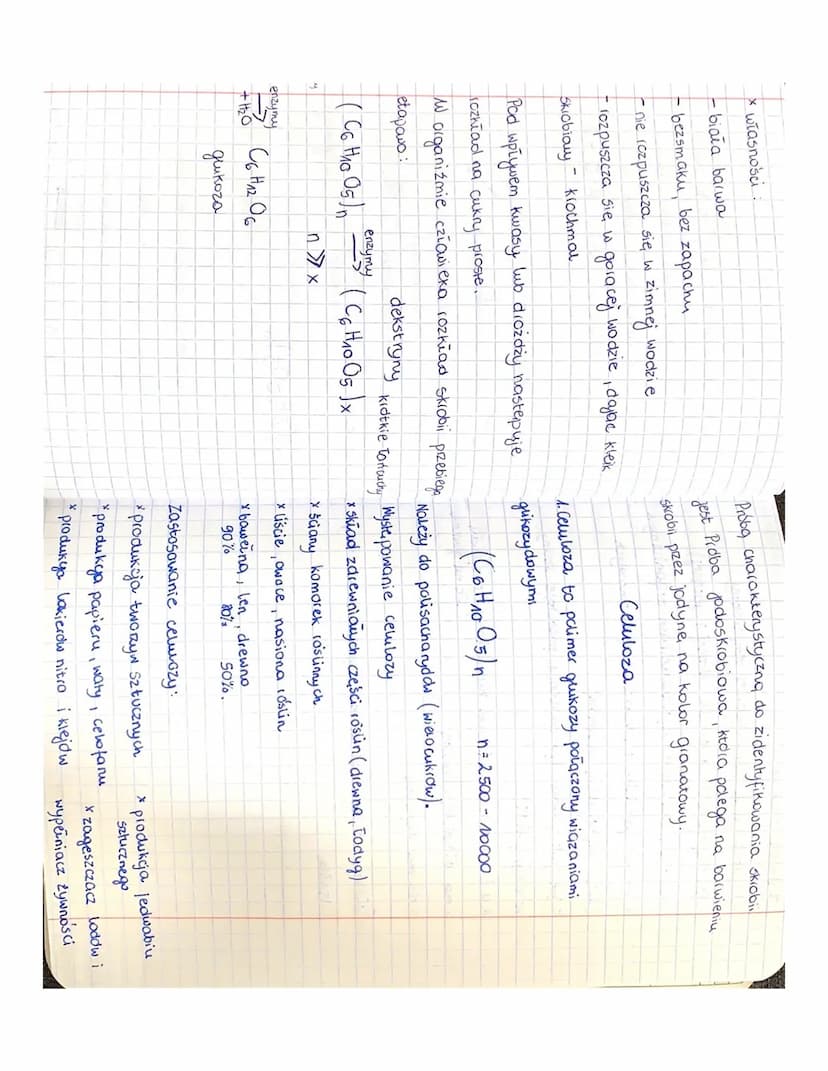 x własności:
- biała barwa
- bezsmaku, bez zapachu
- nie rozpuszcza się w zimnej wodzie
- rozpuszcza się w gorącej wodzie, dając kleik
skrobiowy - krochmal
Pod wpływem kwasy lub drożdży następuje
rozkład na cukry proste.
W organizmie człowieka rozkład skrobii przebiega
etapawo:
dekstryny krótkie łańcuchy
(C6H10O5)n enzymy → (C6H10O5)x
n >> x
enzymy → + H2O C6H12O6
glukoza
Próbą charakterystyczną do zidentyfikowania skrobii
jest Próba jodoskrobiowa, która polega na barwieniu
skrobii przez jodynę na kolor granatowy.
Celuloza
1. Celuloza to polimer glukozy połączony wiązaniami
glikozydowymi
(C6H10O5)n n = 2500 - 10000
Należy do polisacharydów (wielocukrów).
Występowanie celulozy
x skład zdrewniałych części roślin (drewna, łodyg)
x ściany komórek roślinnych
x liście, owoce, nasiona roślin
x bawełna, len, drewno
90% 70% 50%.
Zastosowanie celulozy:
x produkcja tworzyw sztucznych
x produkcja papieru, waty, celofanu
x produkcja lakierów nitro i klejów
x produkcja jedwabiu
sztucznego
x zagęszczacz lodów i
wypełniacz żywności